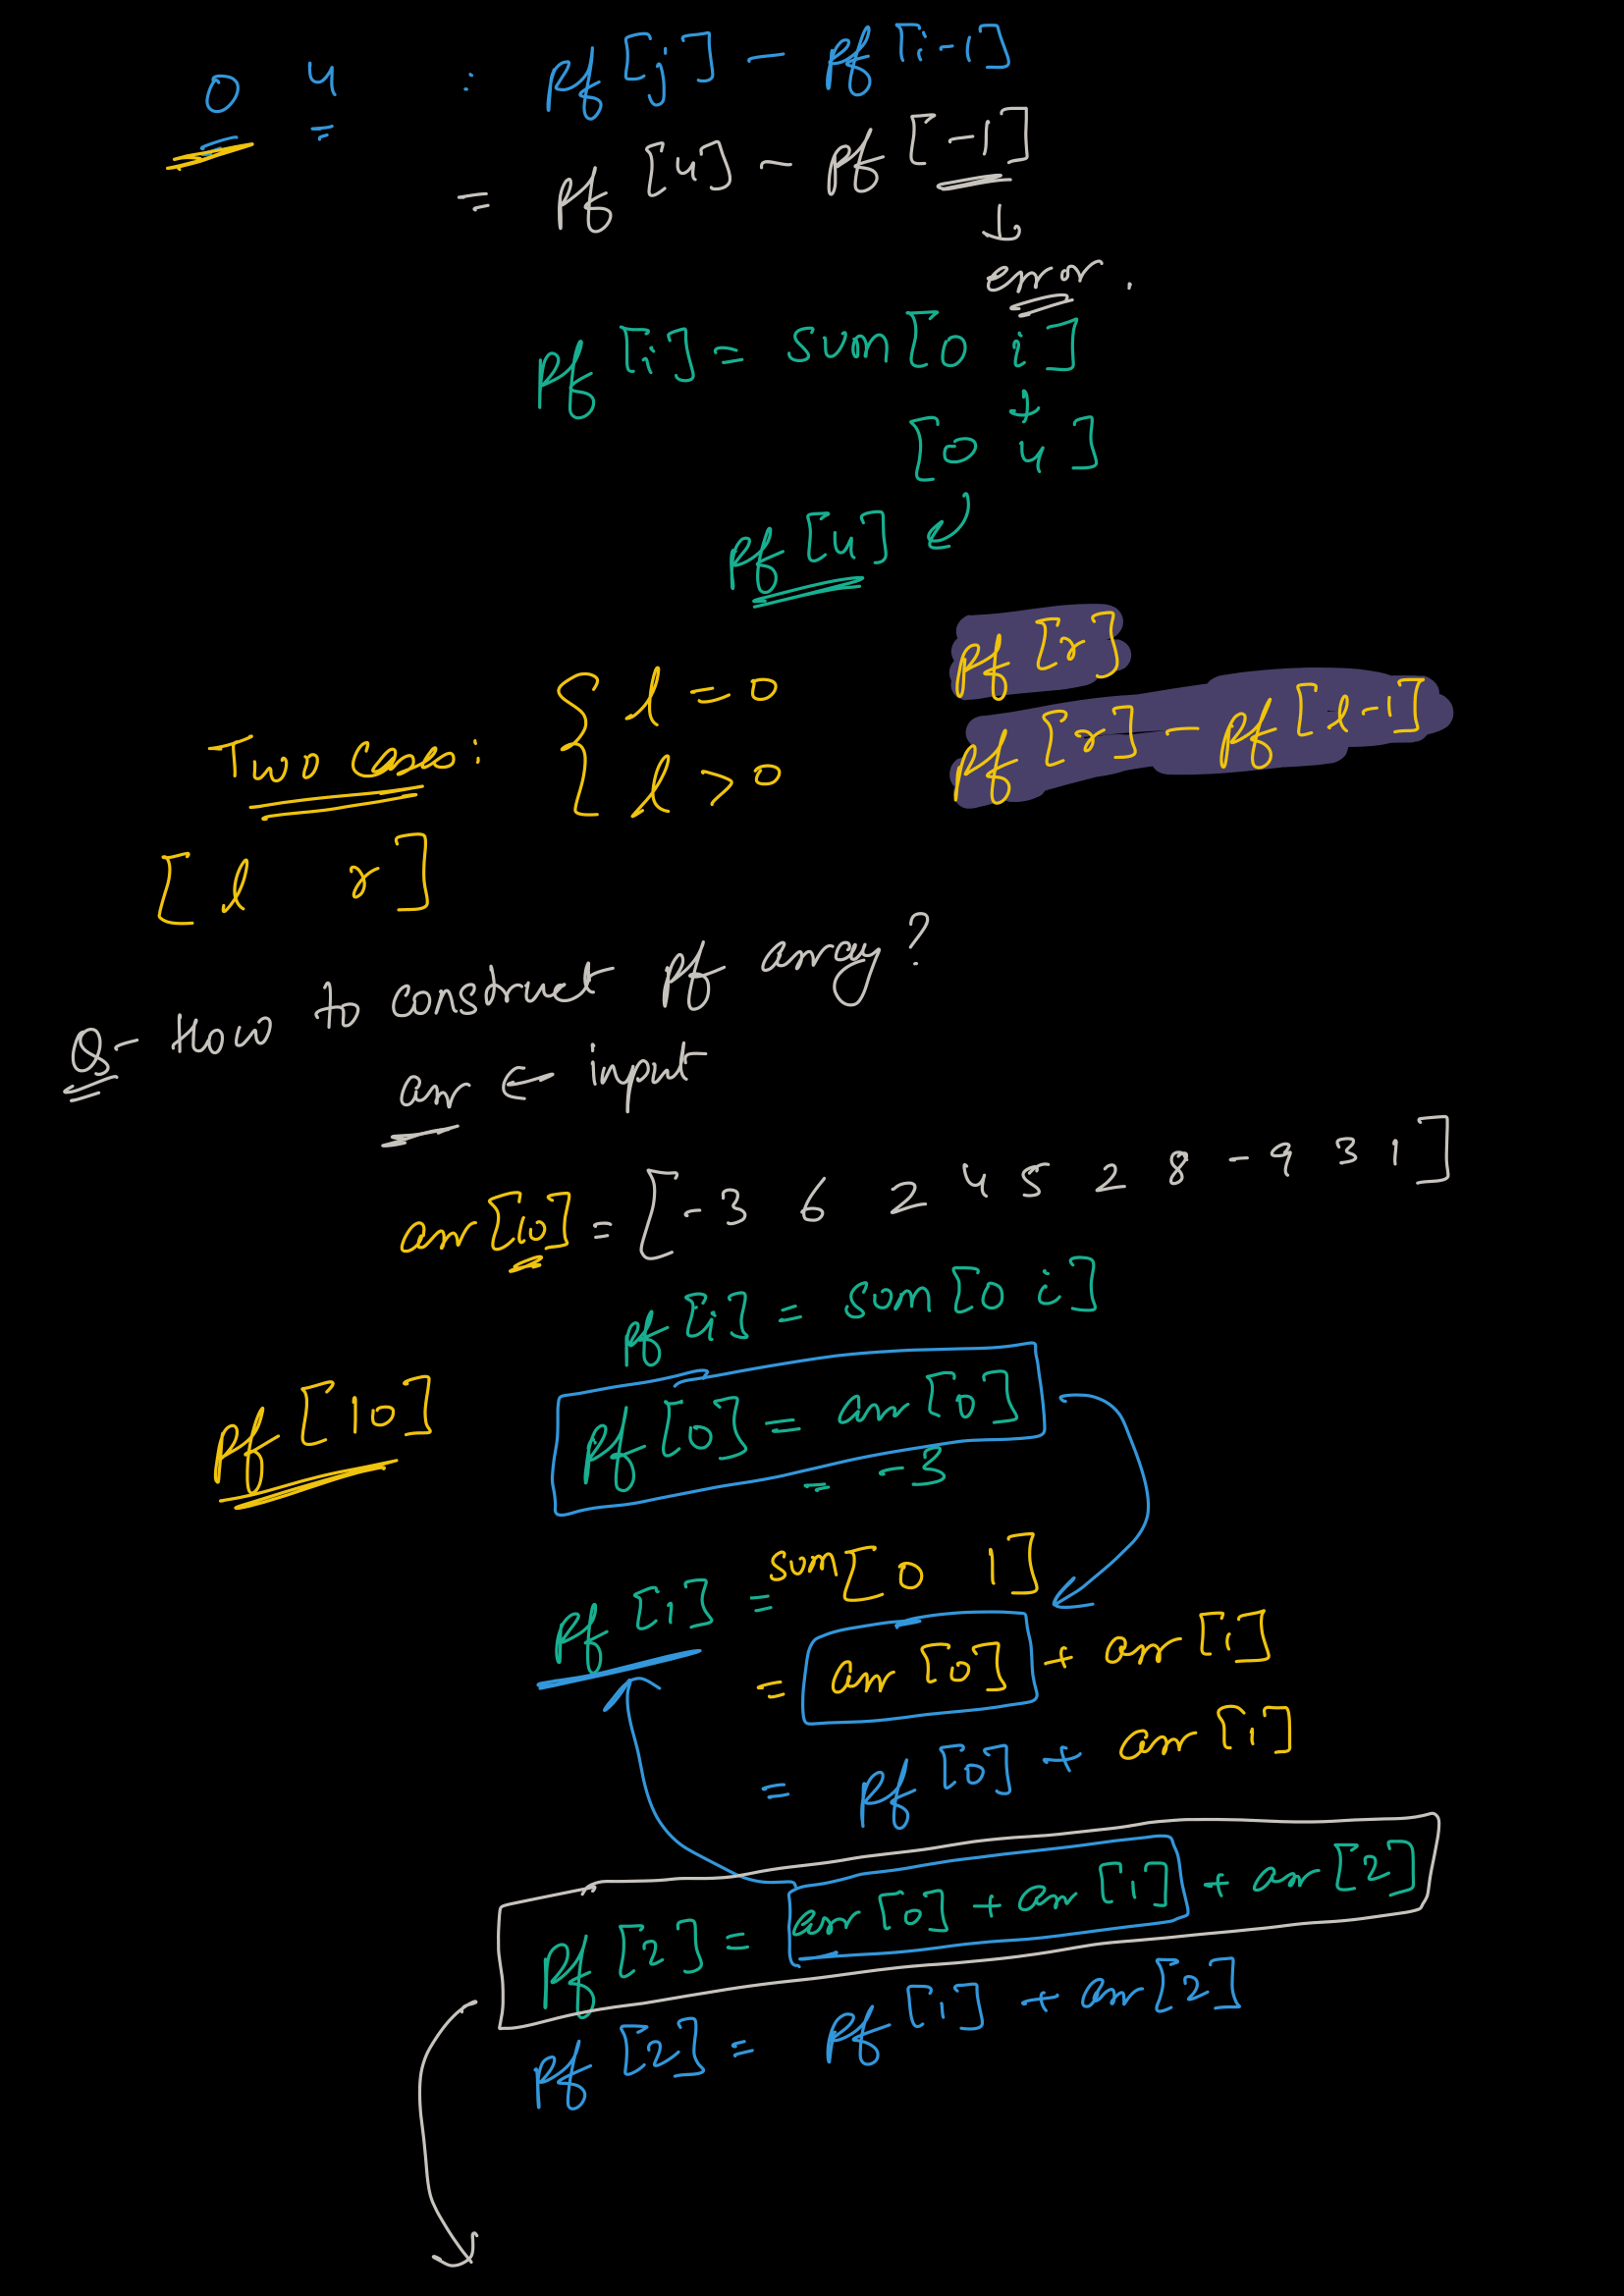 0 4 : Pf[j] - Pf[i-1]
= Pf[4] - Pf[-1]
↓
error.
Pf[i] = sum[0 i]
↓
[0 4]
Pf[4]
Two cases: { l = 0 Pf[r]
l > 0 Pf[r] - Pf[l-1]
[l r]
Q- How to construct Pf array?
arr ← input
arr[10] = [-3 6 2 4 5 2 8 -9 3 1]
Pf[i] = sum[0 i]
Pf[10] Pf[0] = arr[0]
= -3
Pf[1] = sum[0 1]
= arr[0] + arr[1]
= Pf[0] + arr[1]
Pf[2] = arr[0] + arr[1] + arr[2]
Pf[2] = Pf[1] + arr[2]